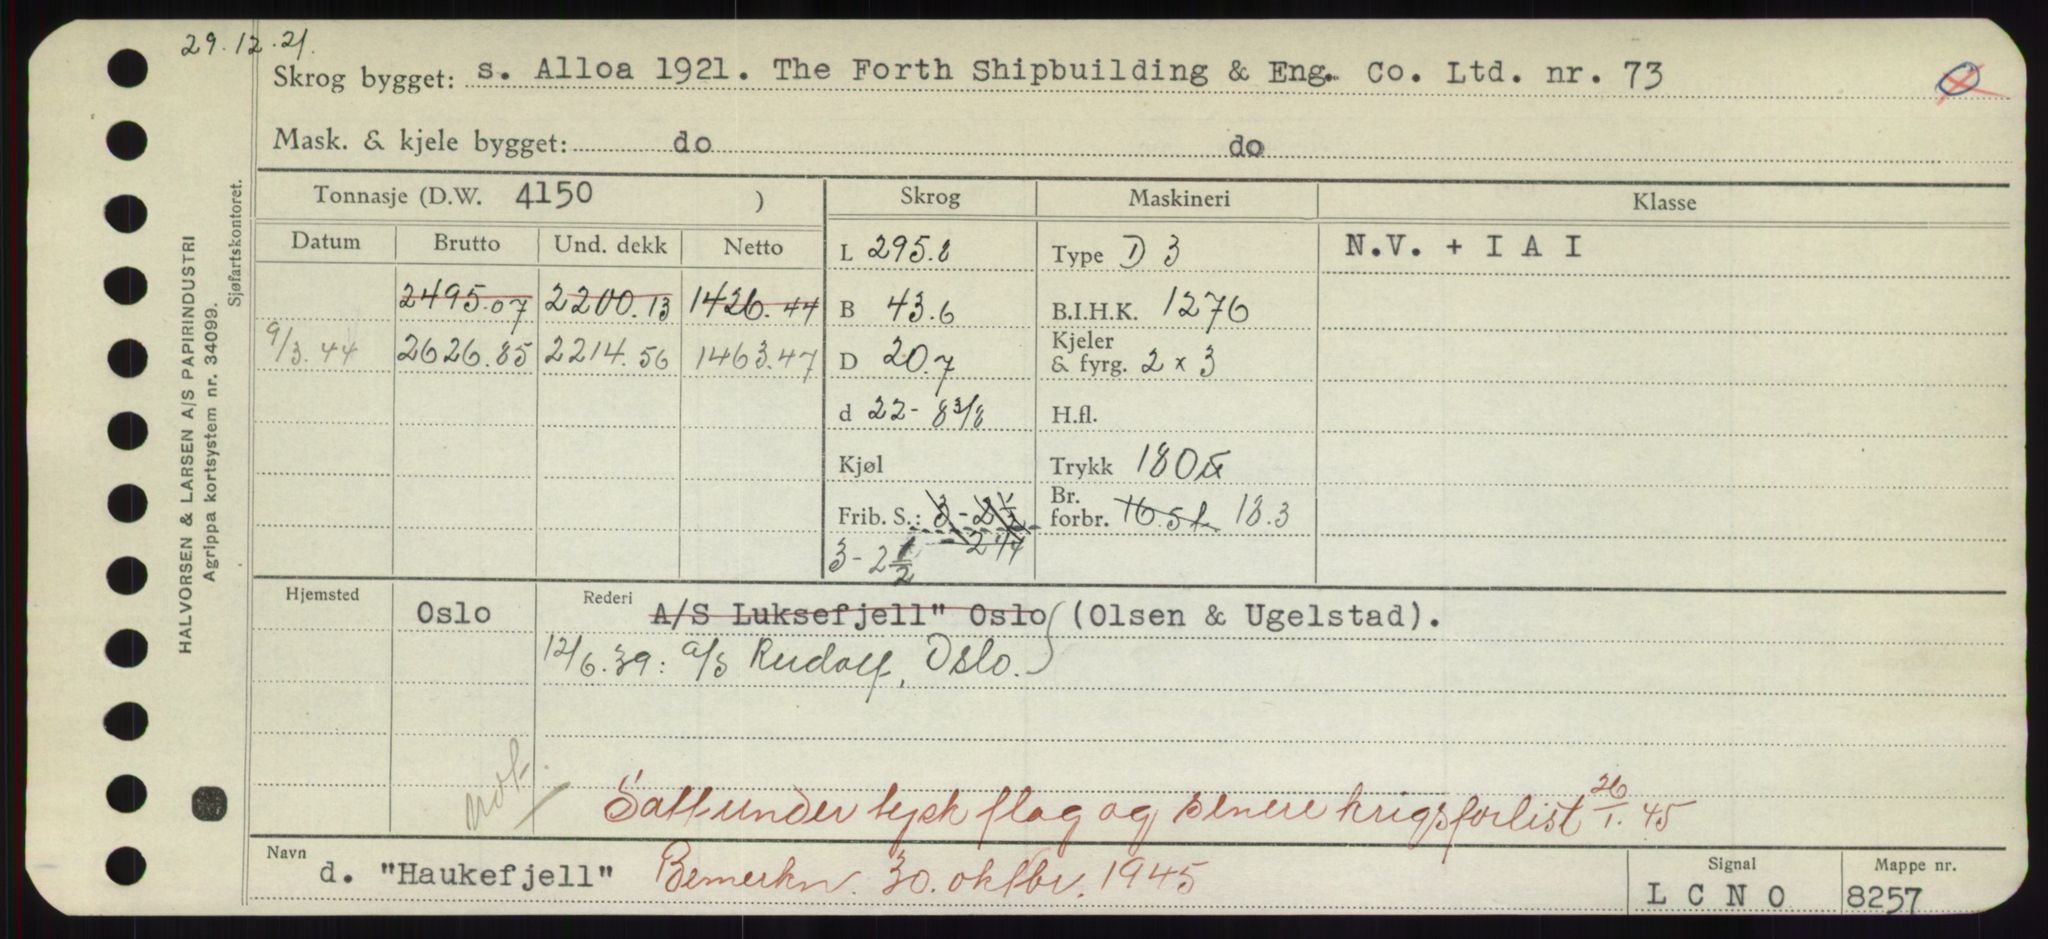 29.12.21.
Skrog bygget: s. Alloa 1921. The Forth Shipbuilding & Eng. Co. Ltd. nr. 73
Mask. & kjele bygget: do do
Tonnasje (D.W. 4150 ) Skrog Maskineri Klasse
Datum Brutto Und. dekk Netto L 295.8 Type D 3 N.V. + I A I
2495.07 2200.13 1426.44 B 43.6 B.I.H.K. 1276
9/3.44 2626.85 2214.56 1463.47 D 20.7 Kjeler & fyrg. 2 x 3
d 22-8 3/8 H.fl.
Kjøl Trykk 180
Frib. S.: 3-2 1/2 Br. forbr. 16.5 t. 18.3
- 2 1/4
3-2 1/2
Hjemsted Oslo Rederi A/S Luksefjell" Oslo (Olsen & Ugelstad).
12/6.39: A/S Rudolf, Oslo.
not.
Satt under tysk flag og senere krigsforlist 26/1.45
Navn d. "Haukefjell" Bemerkn. 30. oktbr. 1945 Signal LCNO Mappe nr. 8257
HALVORSEN & LARSEN A/S PAPIRINDUSTRI
Agrippa kortsystem nr. 34099.
Sjøfartskontoret.